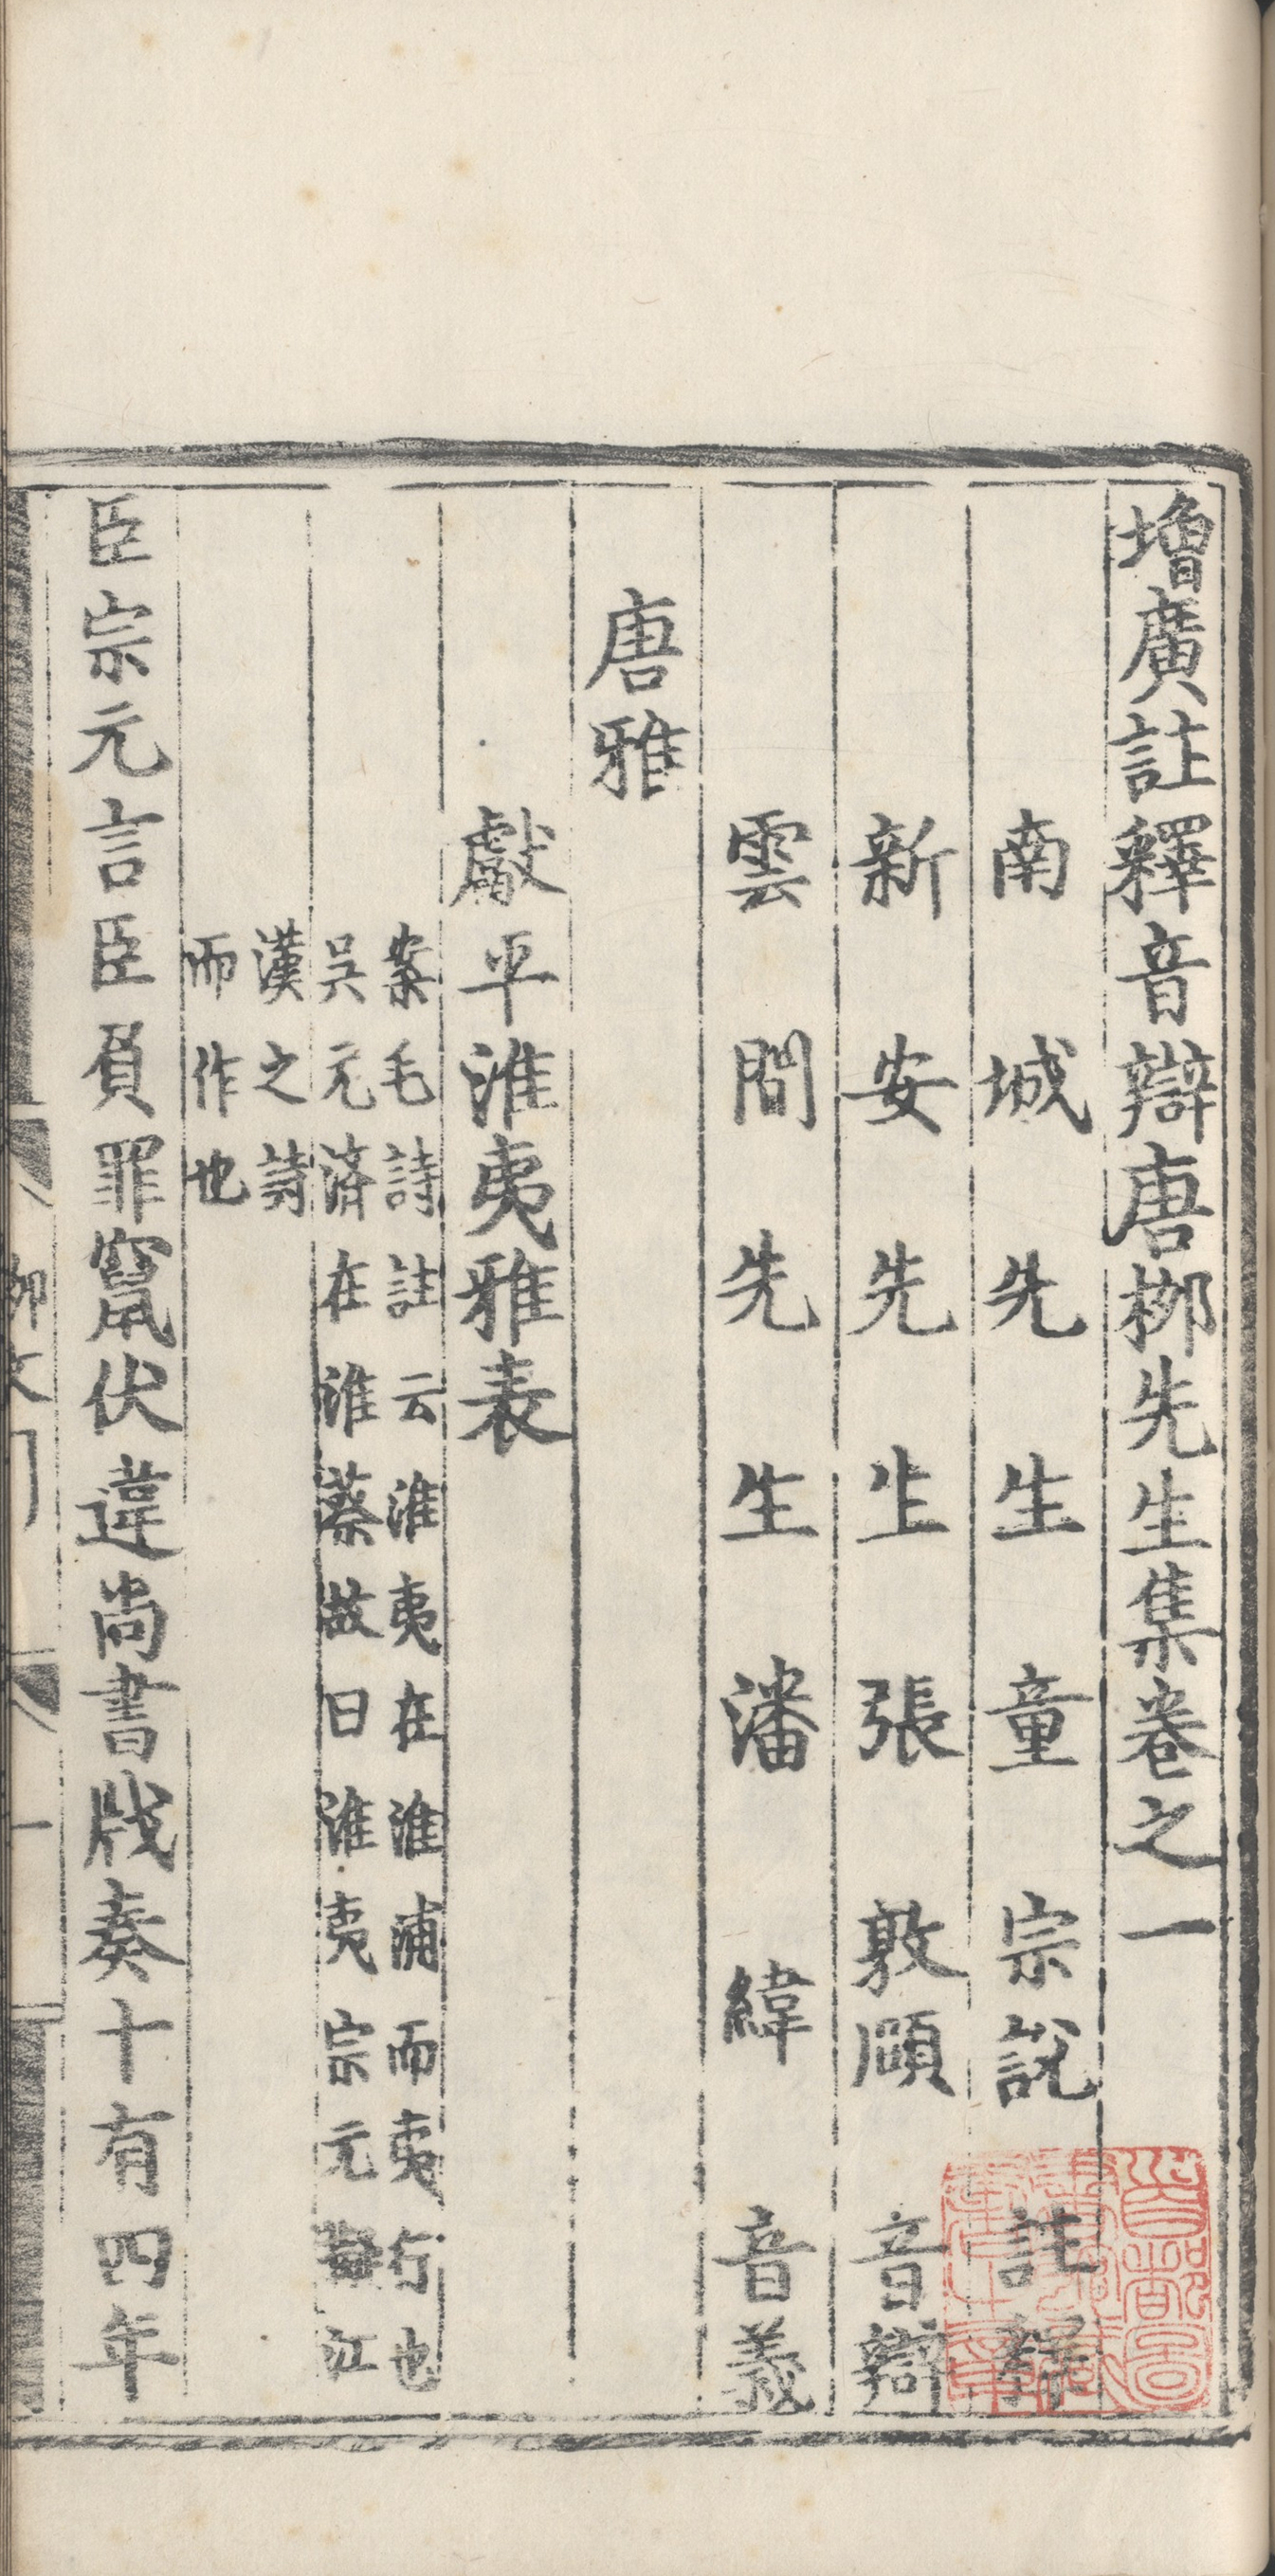 增廣註釋音辯唐栁先生集卷之一
南城先生童宗說註釋
新安先生張敦頤音辯
雲間先生潘緯音義
唐雅
獻平淮夷雅表
案毛詩註云淮夷在淮浦而夷行也
吳元濟在淮蔡故曰淮夷宗元擬江
漢之詩
而作也
臣宗元言臣負罪竄伏違尚書牋奏十有四年
栁文
一